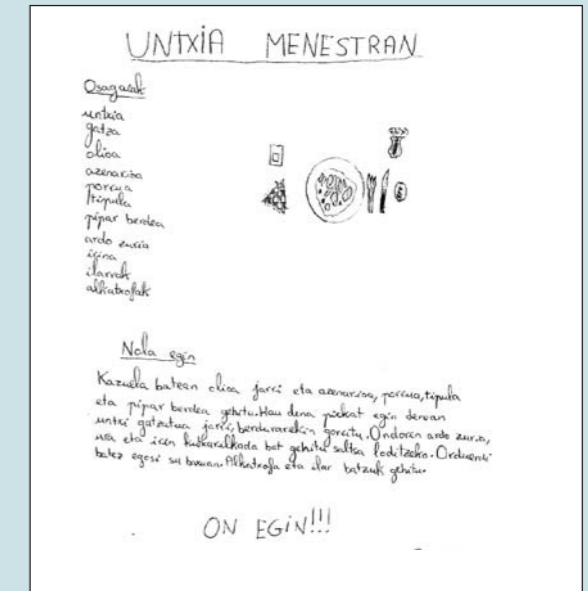 UNTXIA MENESTRAN
Osagaiak
untxia
gatza
olioa
azenarioa
porrua
tipula
pipar berdea
ardo zuria
irina
ilarrak
alkatxofak
Nola egin
Kazuela batean olioa jarri eta azenarioa, porrua, tipula
eta pipar berdea gehitu. Hau dena pixkat egin denean
untxi gatzatua jarri, berdurarekin gorritu. Ondoren ardo zuria,
ura eta irin kutxaralkada bat gehitu saltsa loditzeko. Orduerdi
batez egosi su baxuan. Alkatxofa eta ilar batzuk gehitu.
ON EGIN!!!